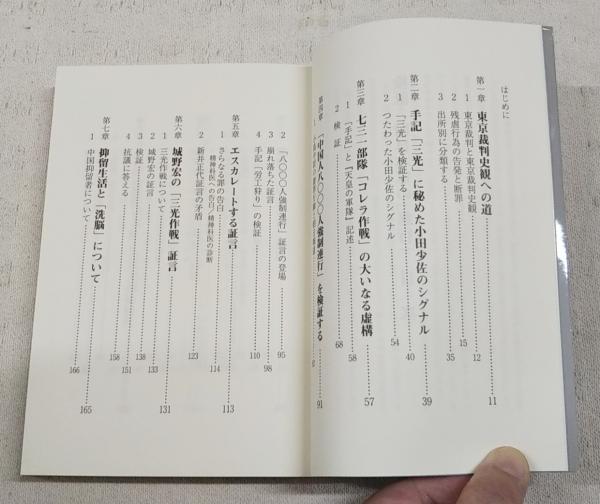 はじめに
第一章 東京裁判史観への道 11
1 東京裁判と東京裁判史観 12
2 残虐行為の告発と断罪 15
3 出所別に分類する 35
第二章 手記「三光」に秘めた小田少佐のシグナル 39
1 「三光」を検証する 40
2 つたわった小田少佐のシグナル 54
第三章 七三一部隊「コレラ作戦」の大いなる虚構 57
1 「手記」と『天皇の軍隊』記述 58
2 検証 68
第四章 「中国人八〇〇〇人強制連行」を検証する 91
2 「八〇〇〇人強制連行」証言の登場 95
3 崩れ落ちた証言 98
4 手記「労工狩り」の検証 110
第五章 エスカレートする証言 113
1 さらなる罪の告白 114
精神科医への告白／精神科医の診断
2 新井正代証言の矛盾 123
第六章 城野宏の「三光作戦」証言 131
1 三光作戦について 133
2 城野宏の証言 138
3 検証 151
4 抗議に答える 158
第七章 抑留生活と「洗脳」について 165
1 中国抑留者について 166